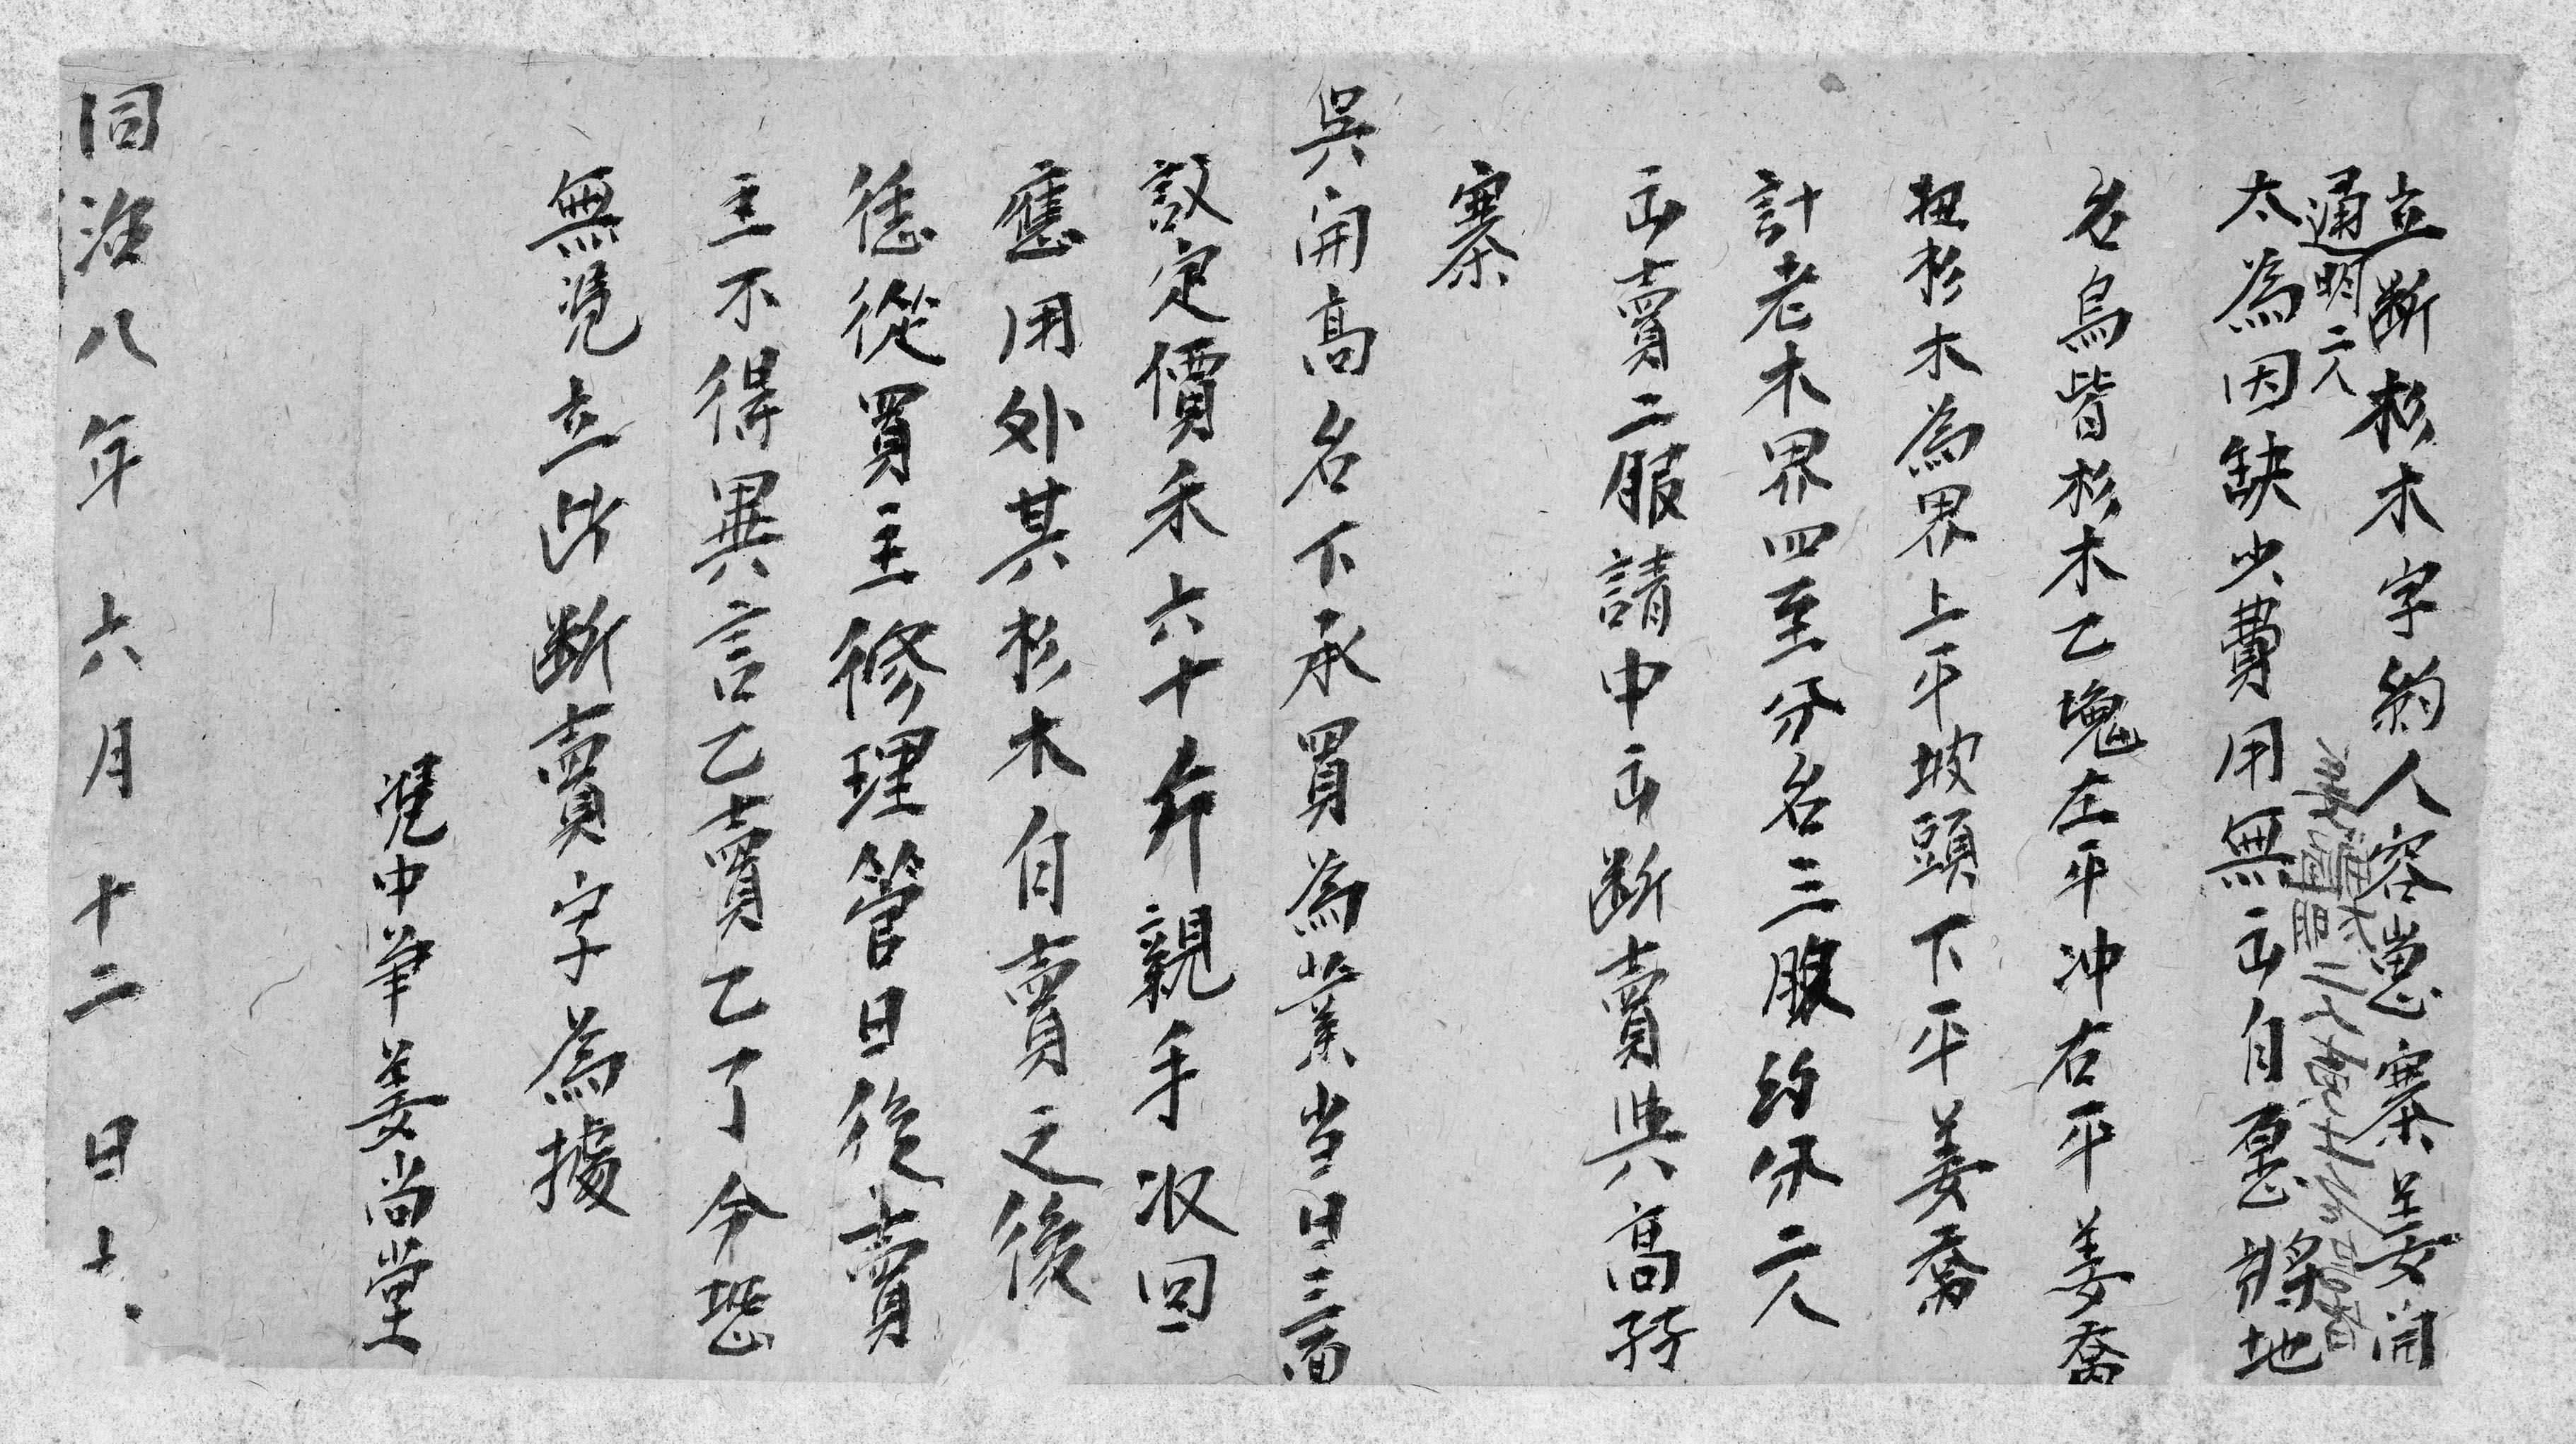 立断杉木字約人容崽寨姜開
通明二人
太為因缺少費用無出自愿將地
名烏皆杉木乙塊左平冲右平姜喬
扭杉木為界上平坡頭下平姜喬
計老木界四至分名三股約分二人
出賣二股請中出断賣與高孖
寨
吳開高名下承買為業当日三面
議定價禾六十斤親手收回
應用外其杉木自賣之後
恁從買主修理管日後賣
主不得異言乙賣乙了今恐
無凴立此断賣字為據
凴中筆姜尚堂
同治八年六月十二日立